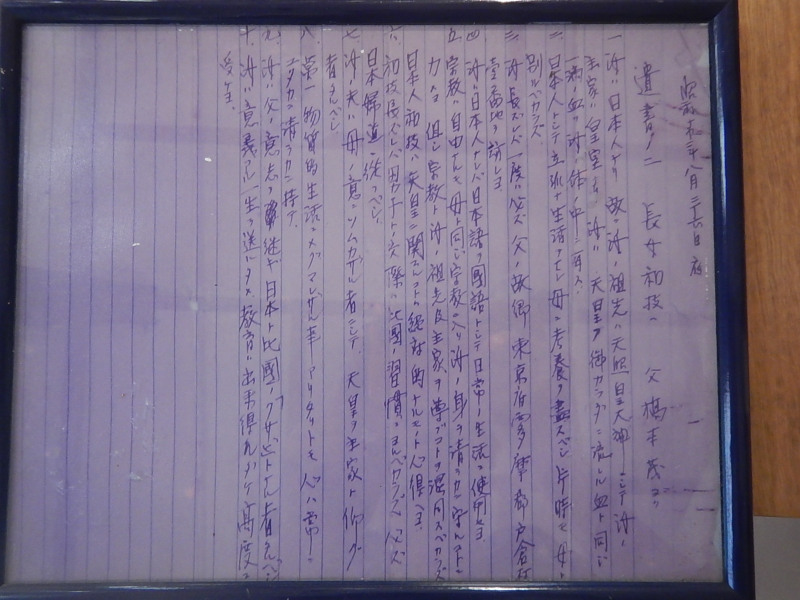 昭和二十三年八月二十六日夜
遺書ノ二 長女初枝ヘ 父橋本茂ヨリ
一、汝ハ日本人ナリ 故ニ汝ノ祖先ハ天照皇大神ニシテ汝ノ
主家ハ皇室ナリ 汝ハ天皇ヲ御カラダニ流レル血ト同ジ
一滴ノ血ヲ汝ノ体ノ中ニ有ス
二、日本人トシテ立派ナ生活ヲナシ母ニ孝養ヲ盡スベシ片時モ母ト
別ルベカラズ
三、汝長ズレバ一度ハ必ズ父ノ故郷東京府西多摩郡戸倉村
壱番地ヲ訪レヨ
四、汝ハ日本人ナレバ日本語ヲ國語トシテ日常ノ生活ニ使用セヨ
五、宗教ハ自由ナルモ母ト同ジ宗教ニ入リ汝ノ身ヲ清ラカニ守ルコトニ
力メヨ 但シ宗教ト汝ノ祖先及主家ヲ尊ブコトヲ混同スベカラズ
日本人初枝ハ天皇ニ関スルコトハ絶対的ナルモノト心得ヘヨ
六、初枝長ズレバ男女トノ交際ハ比國ノ習慣ニヨルベカラズ 必ズ
日本婦道ニ從フベシ
七、汝ノ夫ハ母ノ意ニソムカザル者ニシテ 天皇ヲ主家ト仰グ
者ナルベシ
八、第一物質的生活ニメグマレザル事アリタリトモ心ハ常ニ
ユタカニ清ラカニ持テ
九、汝ハ父ノ意志ヲ継ギ日本ト比國ノクサビトナル者ナルベシ
十、汝ハ意義アル一生ヲ送ルタメ教育ハ出来得ルダケ高度ニ
受ケヨ